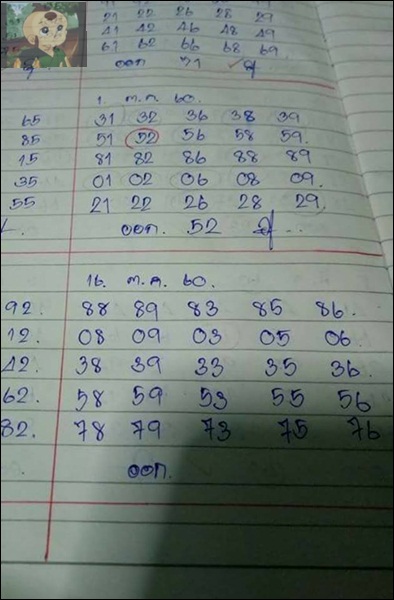 21 22 26 28 29
41 42 46 48 49
61 62 66 68 69
ออก 21
1. ต.ค. 60.
65 31 32 36 38 39
85 51 52 56 58 59.
15 81 82 86 88 89
35 01 02 06 08 09.
55 21 22 26 28 29
ออก. 52
16. ต.ค. 60.
92. 88 89 83 85 86.
12. 08 09 03 05 06
42. 38 39 33 35 36
62. 58 59 53 55 56
82. 78 79 73 75 76
ออก.